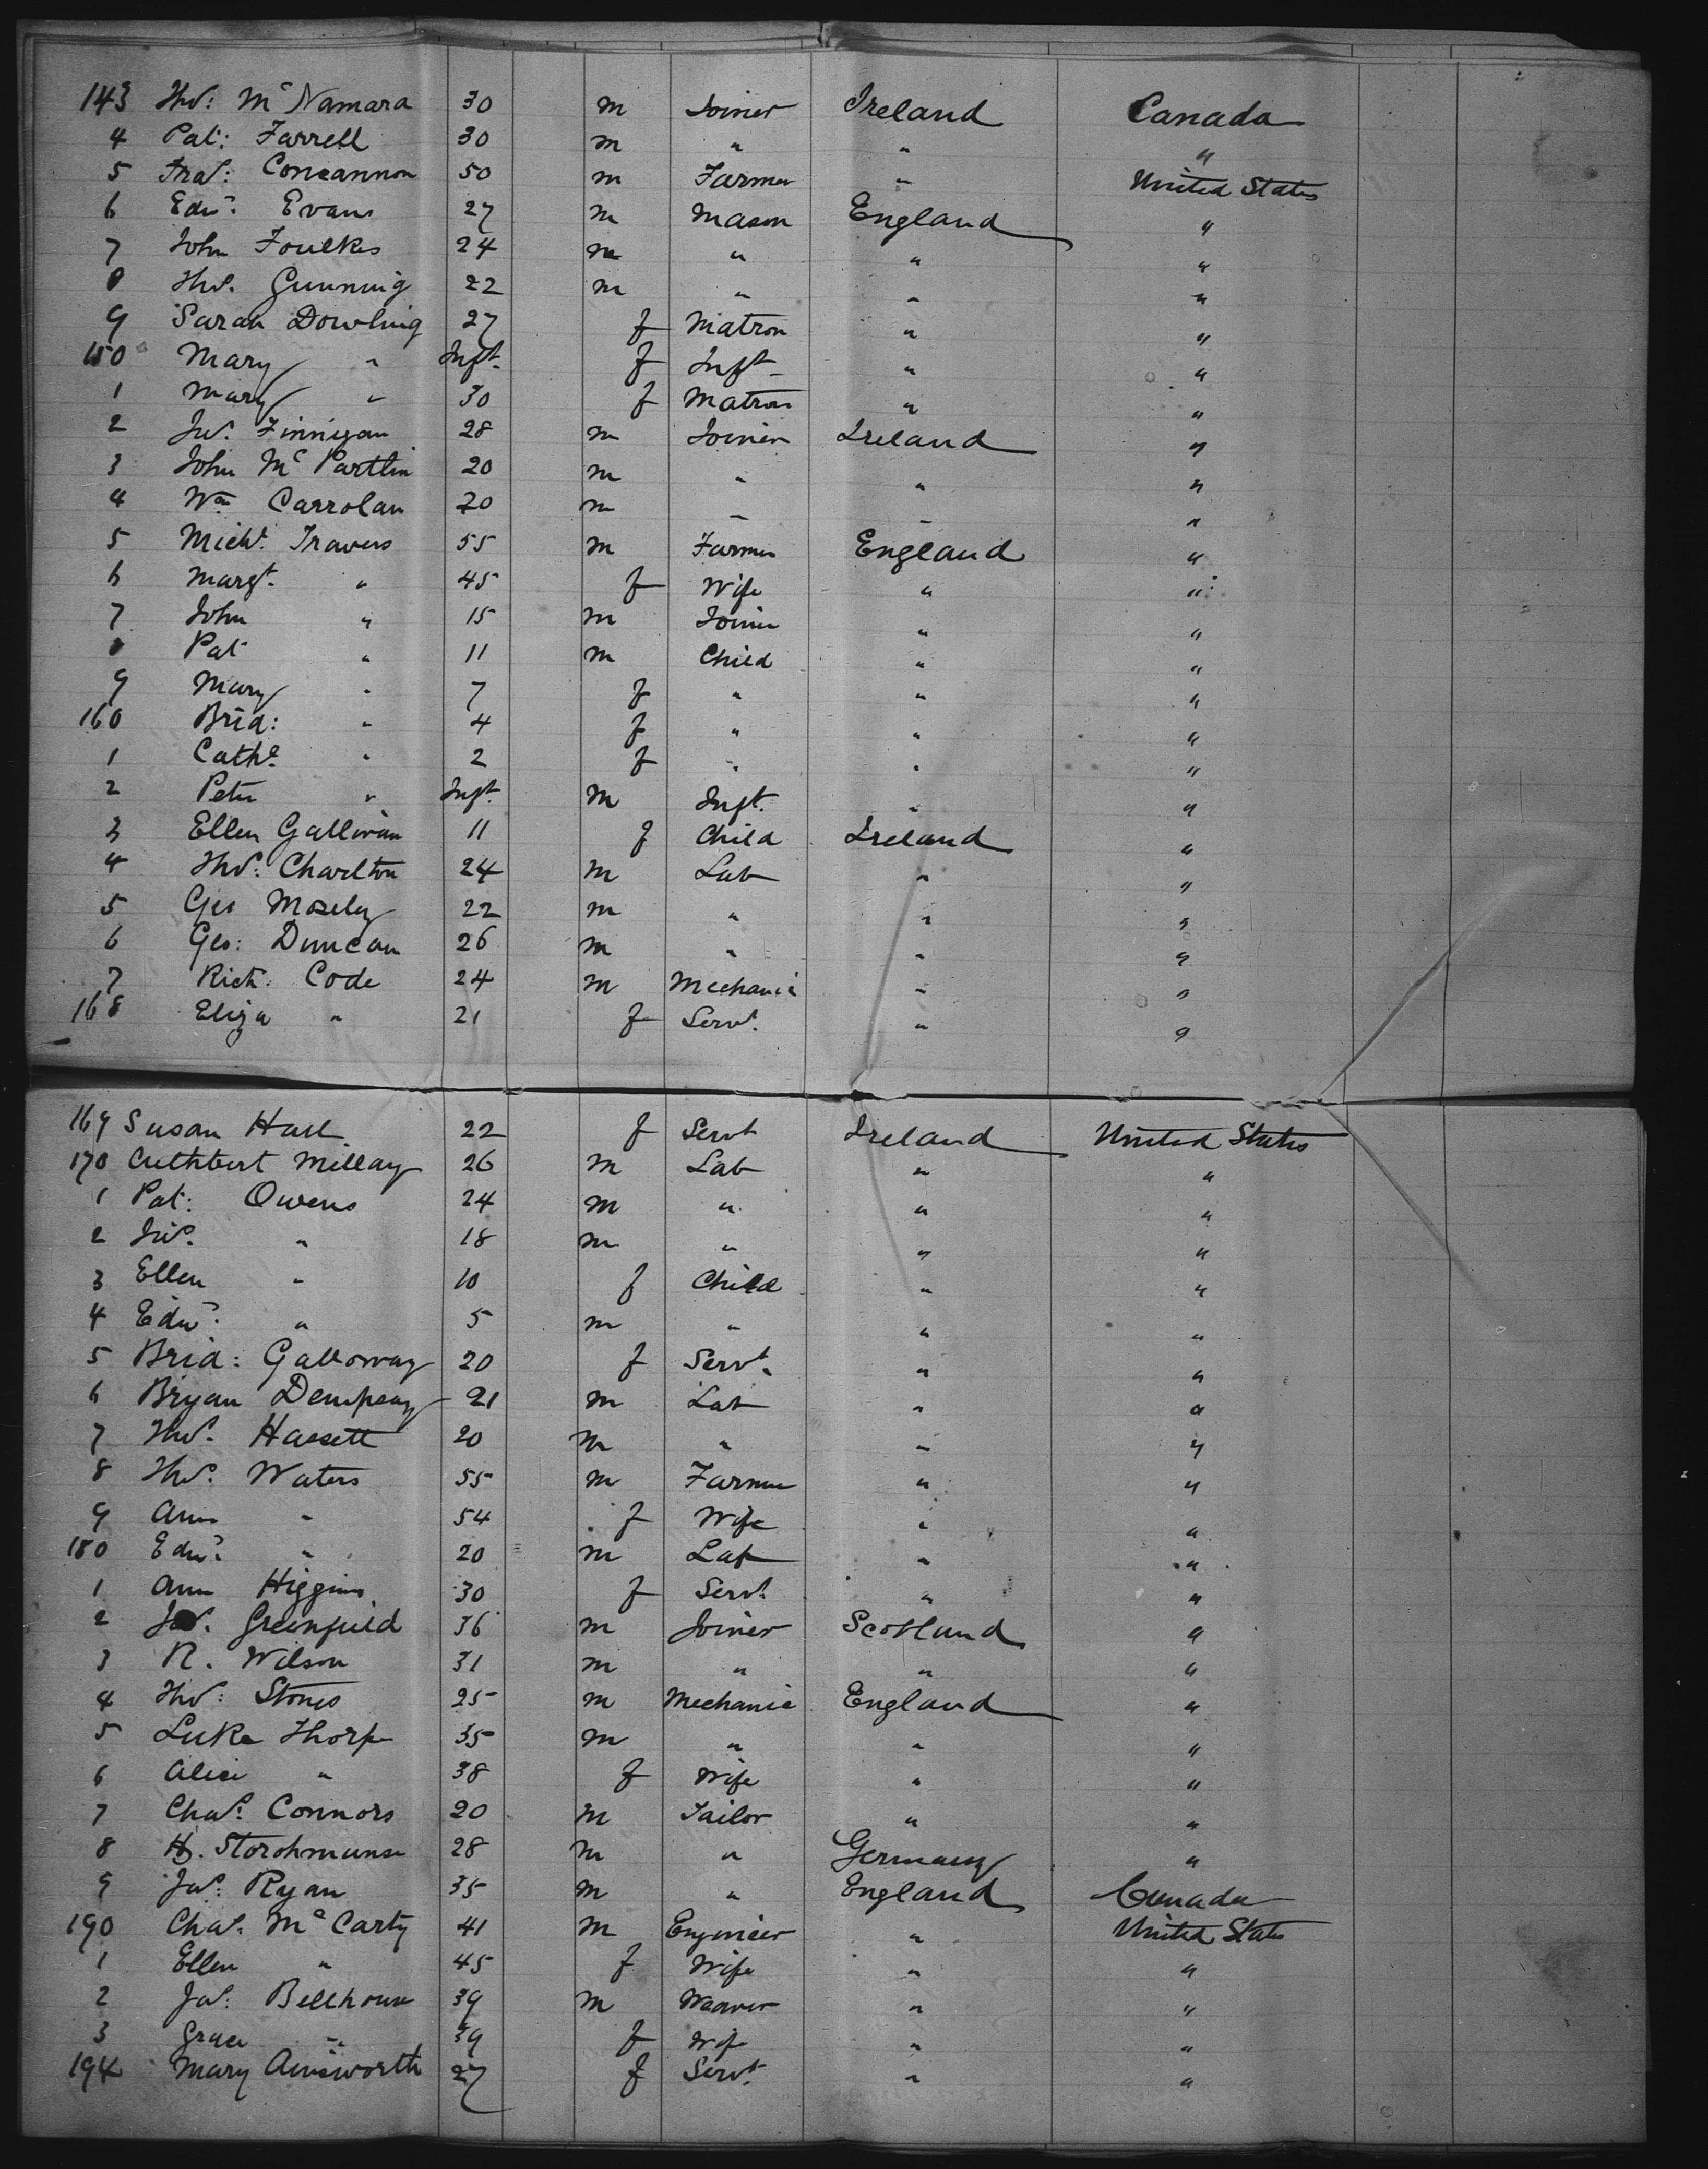 143 Thos: McNamara 30 m Joiner Ireland Canada
4 Pat: Farrell 30 m " " "
5 Fras: Concannon 50 m Farmer " United States
6 Edwd: Evans 27 m Mason England "
7 John Foulkes 24 m " " "
8 Thos. Gunning 22 m " " "
9 Sarah Dowling 27 f Matron " "
150 Mary " Inft. f Inft " "
1 Mary " 30 f Matron " "
2 Jno. Finnigan 28 m Joiner Ireland "
3 John McPartlin 20 m " " "
4 Wm Carrolan 20 m " " "
5 Michl. Travers 55 m Farmer England "
6 Margt. " 45 f Wife " "
7 John " 15 m Joiner " "
8 Pat " 11 m Child " "
9 Mary " 7 f " " "
160 Brid: " 4 f " " "
1 Cathe. " 2 f " " "
2 Peter " Inft. m Inft. " "
3 Ellen Gallivan 11 f Child Ireland "
4 Thos: Charlton 24 m Lab " "
5 Geo Mosely 22 m " " "
6 Geo: Duncan 26 m " " "
7 Rich: Code 24 m Mechanic " "
168 Eliza " 21 f Servt. " "
169 Susan Hall 22 f Servt Ireland United States
170 Cuthbert Millay 26 m Lab " "
1 Pat: Owens 24 m " " "
2 Jno. " 18 m " " "
3 Ellen " 10 f Child " "
4 Edwd: " 5 m " " "
5 Brid: Galloway 20 f Servt. " "
6 Bryan Dempsey 21 m Lab " "
7 Thos. Hassett 20 m " " "
8 Thos. Waters 55 m Farmer " "
9 Ann " 54 f Wife " "
180 Edwd: " 20 m Lab " "
1 Ann Higgins 30 f Servt. " "
2 Greenfield 36 m Joiner Scotland "
3 R. Wilson 31 m " " "
4 Thos: Stones 25 m Mechanic England "
5 Luke Thorp 35 m " " "
6 Alice " 38 f Wife " "
7 Chas: Connors 20 m Tailor " "
8 H. 28 m " Germany "
9 Jas: Ryan 35 m " England Canada
190 Chas. McCarty 41 m Engineer " United States
1 Ellen " 45 f Wife " "
2 Jas: Bellhouse 39 m Weaver " "
3 Grace " 39 f Wife " "
194 Mary Ainsworth 27 f Servt. " "